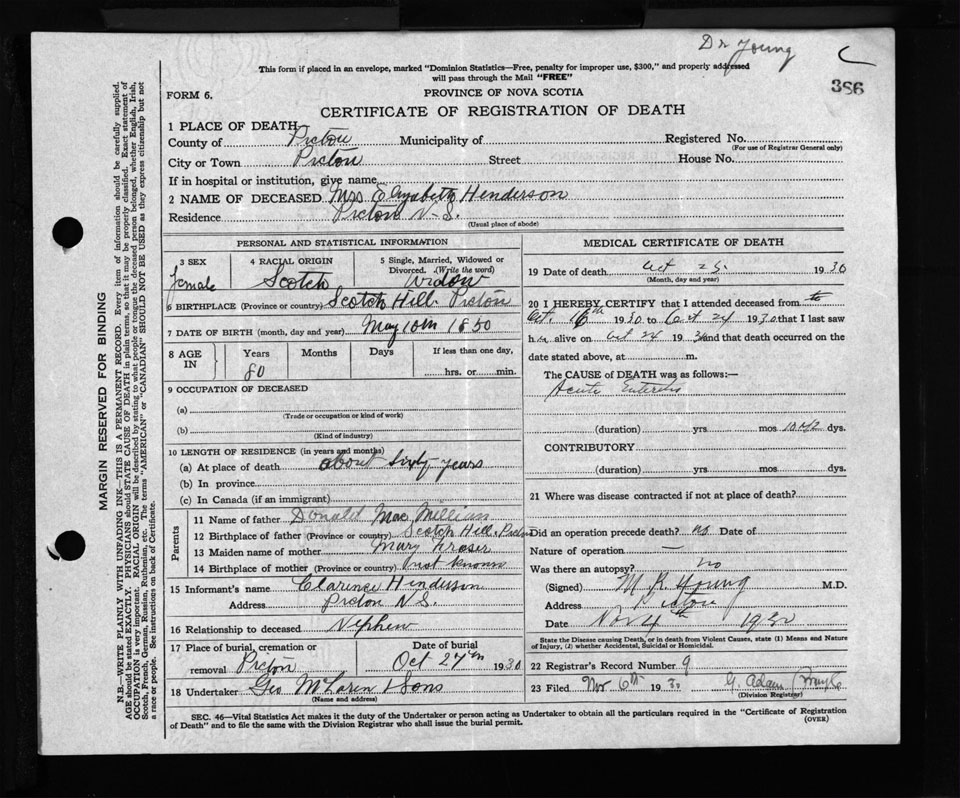 Dr Young
386
This form if placed in an envelope, marked "Dominion Statistics—Free, penalty for improper use, $300," and properly addressed
will pass through the Mail "FREE"
FORM 6.
PROVINCE OF NOVA SCOTIA
CERTIFICATE OF REGISTRATION OF DEATH
MARGIN RESERVED FOR BINDING
N.B.—WRITE PLAINLY WITH UNFADING INK—THIS IS A PERMANENT RECORD. Every item of information should be carefully supplied.
AGE should be stated EXACTLY. PHYSICIANS should STATE CAUSE OF DEATH in plain terms, so that it may be properly classified. Exact statement of
OCCUPATION is very important. RACIAL ORIGIN will be described by stating to what people or tongue the deceased person belonged, whether English, Irish,
Scotch, French, German, Russian, Ruthenian, etc. The terms "AMERICAN" or "CANADIAN" SHOULD NOT BE USED as they express citizenship but not
a race or people. See instructions on back of Certificate.
1 PLACE OF DEATH
County of Pictou Municipality of Registered No.
(For use of Registrar General only)
City or Town Pictou Street House No.
If in hospital or institution, give name
2 NAME OF DECEASED Mrs Elizabeth Henderson
Residence Pictou N-S.
(Usual place of abode)
PERSONAL AND STATISTICAL INFORMATION
3 SEX 4 RACIAL ORIGIN 5 Single, Married, Widowed or
Divorced. (Write the word)
female Scotch Widow
6 BIRTHPLACE (Province or country) Scotch Hill. Pictou
7 DATE OF BIRTH (month, day and year) May 10th 1850
8 AGE IN Years Months Days If less than one day,
80 hrs. or min.
9 OCCUPATION OF DECEASED
(a)
(Trade or occupation or kind of work)
(b)
(Kind of industry)
10 LENGTH OF RESIDENCE (in years and months)
(a) At place of death about sixty years
(b) In province
(c) In Canada (if an immigrant)
Parents
11 Name of father Donald MacMillian
12 Birthplace of father (Province or country) Scotch Hill. Pictou
13 Maiden name of mother Mary Fraser
14 Birthplace of mother (Province or country) not known
15 Informant's name Clarence Henderson
Address Pictou N.S.
16 Relationship to deceased Nephew
17 Place of burial, cremation or Date of burial
removal Pictou Oct 27th 1930
18 Undertaker Geo McLaren & Sons
(Name and address)
MEDICAL CERTIFICATE OF DEATH
19 Date of death Oct 25. 1930
(Month, day and year)
20 I HEREBY CERTIFY that I attended deceased from to
Oct. 16th 1930 to Oct 24 1930 that I last saw
her alive on Oct 24 1930 and that death occurred on the
date stated above, at m.
The CAUSE of DEATH was as follows:—
Acute Enteritis
(duration) yrs mos dys.
CONTRIBUTORY
(duration) yrs mos dys.
21 Where was disease contracted if not at place of death?
Did an operation precede death? no Date of
Nature of operation —
Was there an autopsy? no
(Signed) M R Young M.D.
Address Pictou
Date Nov 4th 1930
State the Disease causing Death, or in death from Violent Causes, state (1) Means and Nature
of Injury, (2) whether Accidental, Suicidal or Homicidal.
22 Registrar's Record Number 9
23 Filed Nov 6th 1930 G. Adam
(Division Registrar)
SEC. 46—Vital Statistics Act makes it the duty of the Undertaker or person acting as Undertaker to obtain all the particulars required in the "Certificate of Registration
of Death" and to file the same with the Division Registrar who shall issue the burial permit.
(OVER)